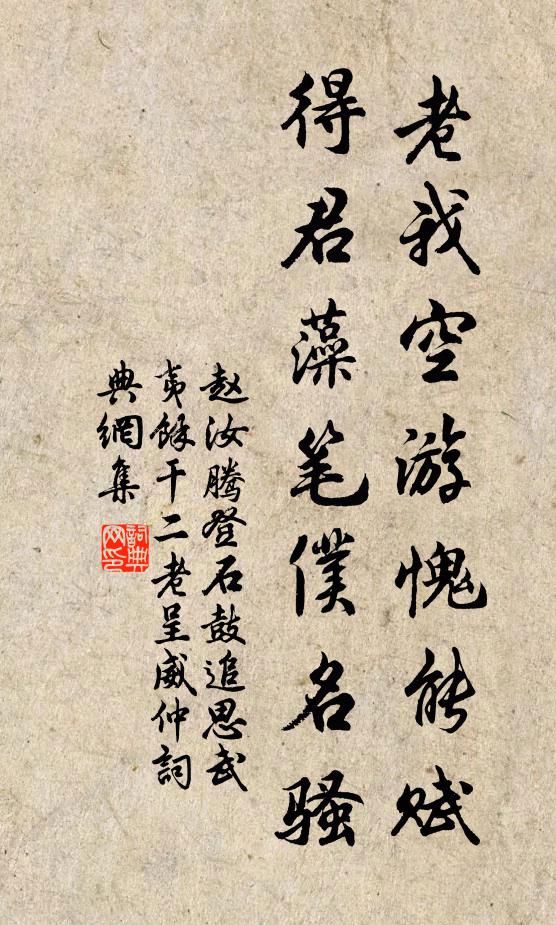 老我空游愧能赋
得君藻笔仆名骚
赵汝腾登石鼓追思武
夷馀干二老呈威仲詞
典網集
詞典網印